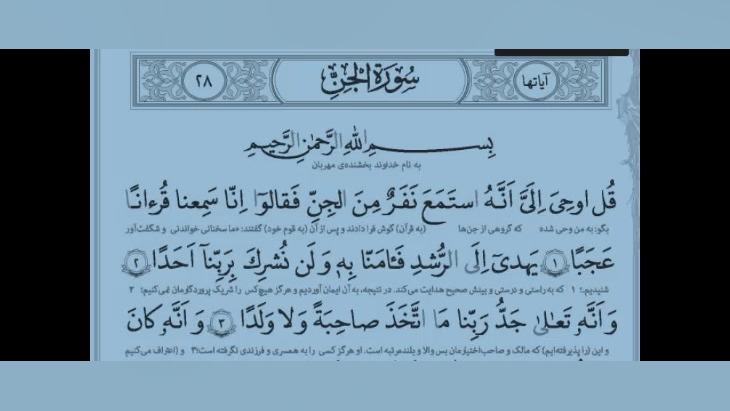 آیاتها سُورَةُ الجِنِّ ۲۸
بِسمِ اللهِ الرَّحمٰنِ الرَّحیمِ
به نام خداوند بخشنده‌ی مهربان
قُل اوحِیَ اِلَیَّ اَنَّهُ استَمَعَ نَفَرٌ مِنَ الجِنِّ فَقالوٓا اِنّا سَمِعنا قُرءانًا
بگو: به من وحی شده که گروهی از جن‌ها (به قرآن) گوش فرا دادند و پس از آن (به قوم خود) گفتند: «ما سخنانی خواندنی و شگفت‌آور
عَجَبًا ۱ یَهدیٓ اِلَی الرُّشدِ فَـٔامَنّا بِهٖ وَ لَن نُشرِکَ بِرَبِّنآ اَحَدًا ۲
شنیدیم؛ ۱ که به راستی و درستی و بینش صحیح هدایت می‌کند. در نتیجه، به آن ایمان آوردیم و هرگز هیچ‌کس را شریک پروردگارمان نمی‌کنیم؛ ۲
وَ اَنَّهٗ تَعالیٰ جَدُّ رَبِّنا مَا اتَّخَذَ صاحِبَةً وَ لا وَلَدًا ۳ وَ اَنَّهٗ کانَ
و این (را پذیرفته‌ایم) که مالک و صاحب‌اختیارمان بس والا و بلندمرتبه است. او هرگز کسی را به همسری و فرزندی نگرفته است؛ ۳ و (اعتراف می‌کنیم